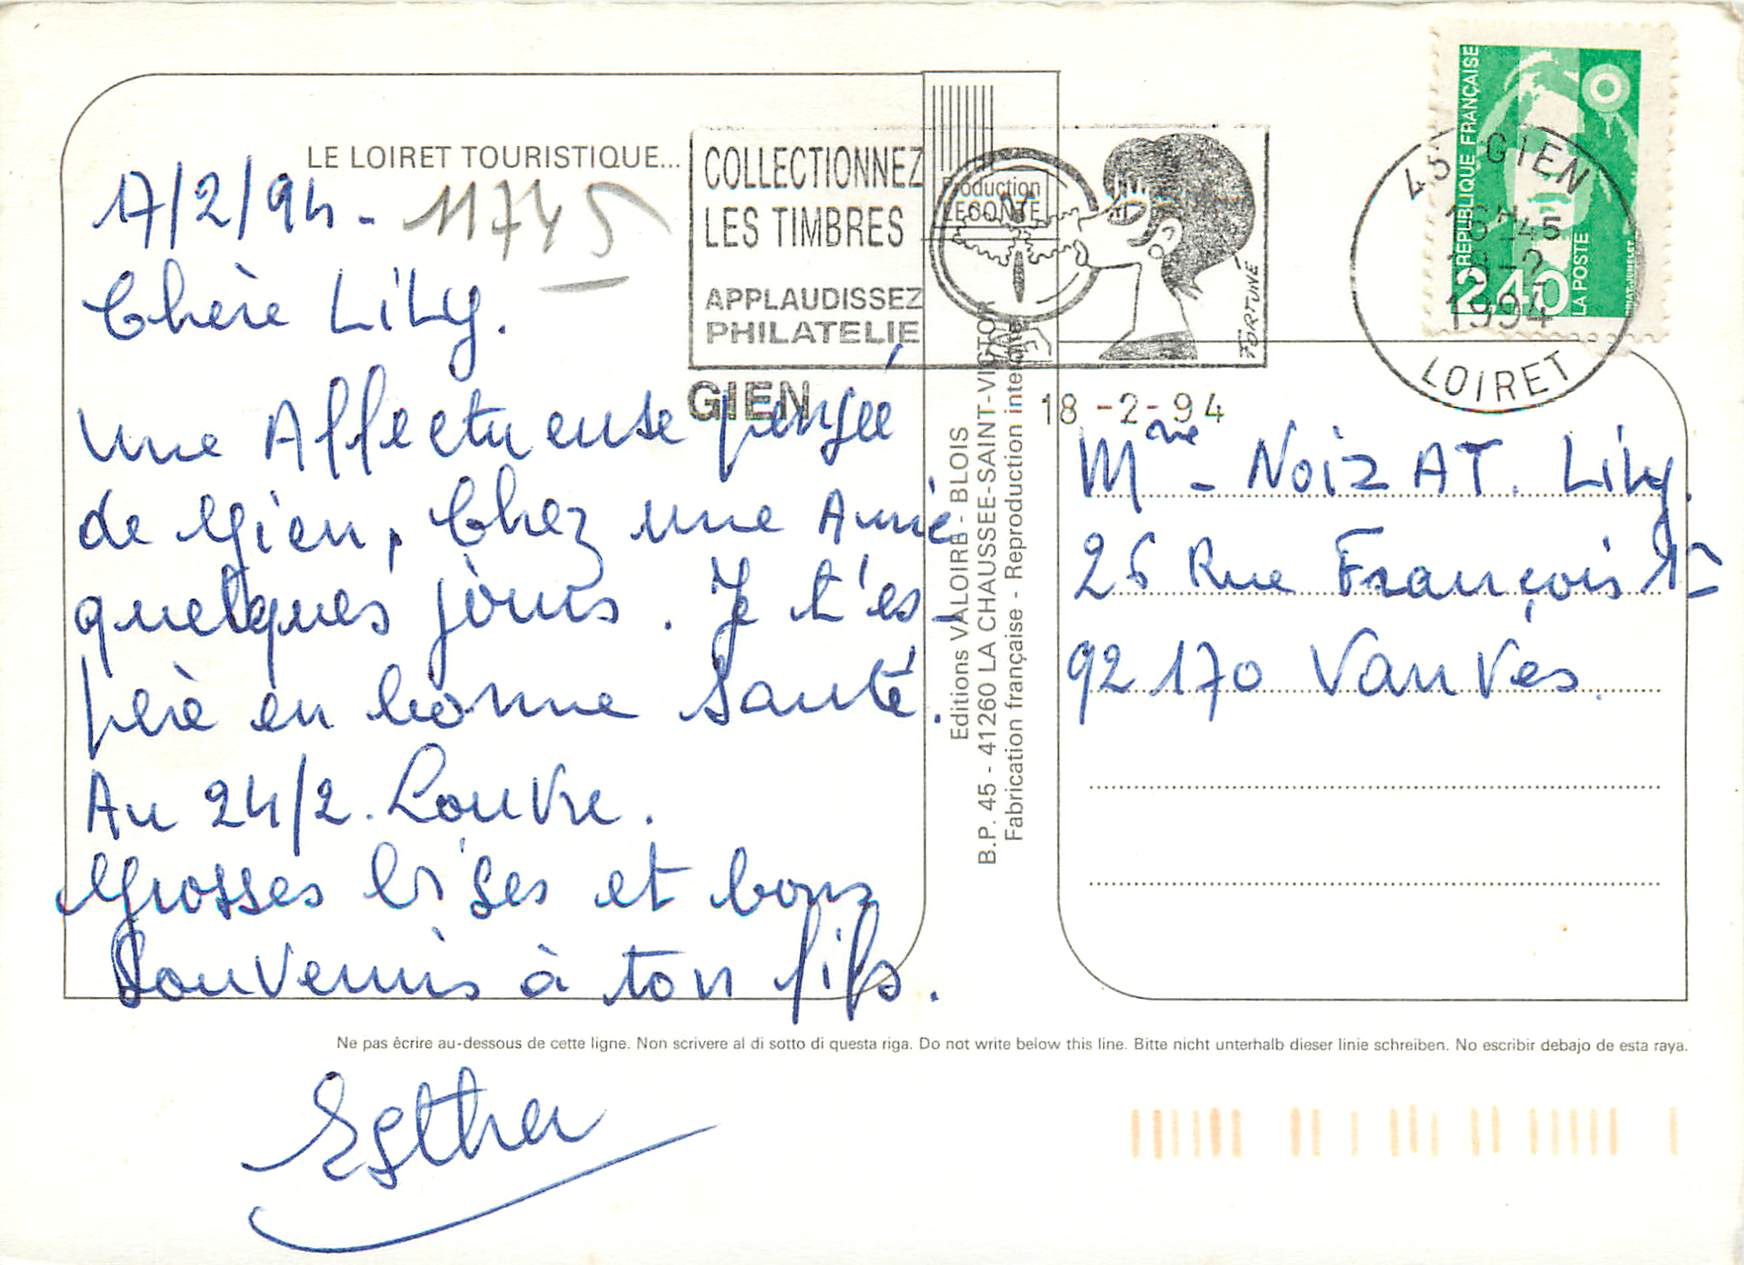 LE LOIRET TOURISTIQUE...
17/2/94 - 11745
Chère Lily.
Une Affectueuse pensée
de Gien, Chez une Amie
quelques jours. Je t'es-
père en bonne Santé.
Au 24/2. Louvre.
Grosses bises et bons
Souvenirs à ton fils.
Esther
COLLECTIONNEZ
LES TIMBRES
APPLAUDISSEZ
PHILATELIE
GIEN
18 -2-94
FORTUNÉ
Production
LECONTE
Editions VALOIRE - BLOIS
B.P. 45 - 41260 LA CHAUSSEE-SAINT-VICTOR
Fabrication française - Reproduction interdite
REPUBLIQUE FRANÇAISE
2,40
LA POSTE
45 GIEN
18-2
1994
LOIRET
Mme - NoizAT. Lily.
26 Rue François 1er
92170 Vanves.
Ne pas écrire au-dessous de cette ligne. Non scrivere al di sotto di questa riga. Do not write below this line. Bitte nicht unterhalb dieser linie schreiben. No escribir debajo de esta raya.